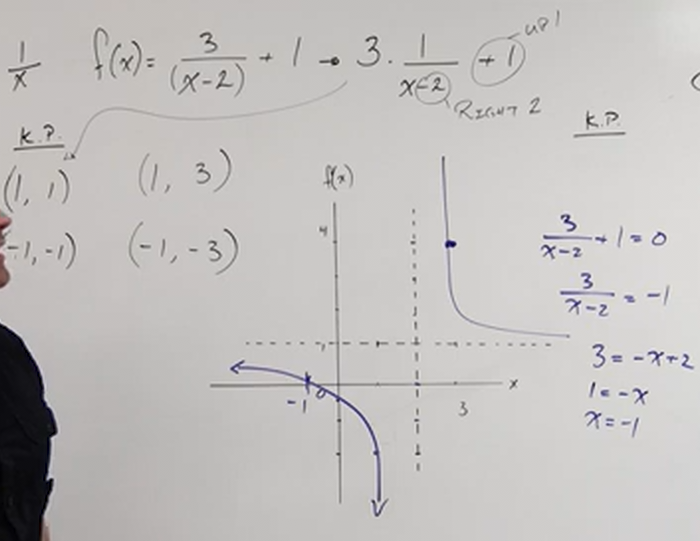 1/x f(x) = 3/(x-2) + 1 → 3 · 1/(x-2) + 1 UP 1
RIGHT 2
K.P. K.P.
(1, 1) (1, 3)
(-1, -1) (-1, -3)
f(x)
4
1
-1 0 3 x
3/(x-2) + 1 = 0
3/(x-2) = -1
3 = -x+2
1 = -x
x = -1